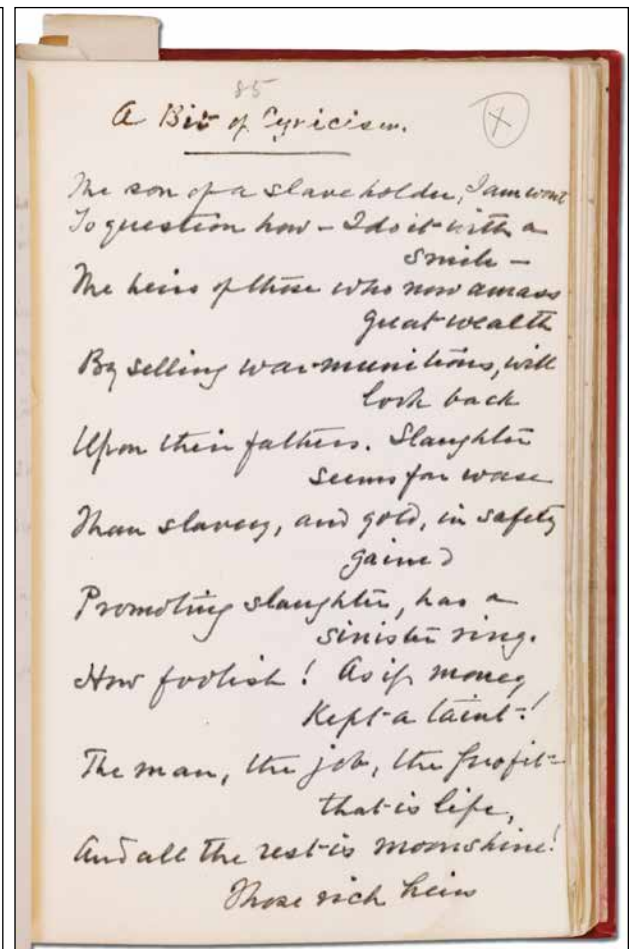 85
A Bit of Cynicism.
X
The son of a slaveholder, I am wont
To question how – I do it with a
smile –
The heirs of those who now amass
great wealth
By selling war-munitions, will
look back
Upon their fathers. Slaughter
seems far worse
Than slavery, and gold, in safety
gained
Promoting slaughter, has a
sinister ring.
How foolish! As if money
Kept a taint!
The man, the job, the profit –
that is life,
And all the rest is moonshine!
Those rich heirs